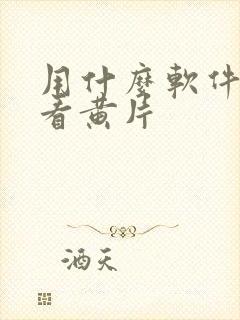 用什麼軟件
看黄片
酒天